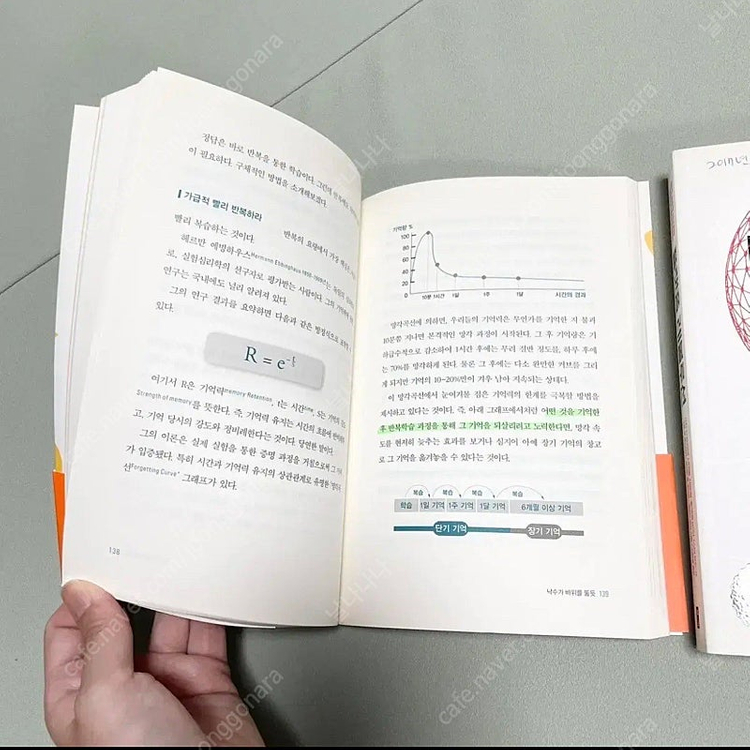 정답은 바로 반복을 통한 학습이다. 그런데
이 필요하다. 구체적인 방법을 소개해보겠다.
가급적 빨리 반복하라
반복의 효력에서 가장
빨리 복습하는 것이다.
헤르만 에빙하우스Hermann Ebbinghaus 1850-1909는
로, 실험심리학의 선구자로 평가받는 사람이다. 그의 기억에
연구는 국내에도 널리 알려져 있다.
그의 연구 결과를 요약하면 다음과 같은 방정식으로
있다.
R = e
여기서 R은 기억력memory Retention, t는 시간time, S는 기억의
Strength of memory를 뜻한다. 즉, 기억력 유지는 시간의 흐름에
고, 기억 당시의 강도와 정비례한다는 것이다. 당연한 말이다.
그의 이론은 실제 실험을 통한 증명 과정을 거침으로써 그
가 입증됐다. 특히 시간과 기억력 유지의 상관관계로 유명한
선Forgetting Curve" 그래프가 있다.
138
기억량 %
100
80
60
40
20
0
10분 1시간 1일 1주 1달 시간의 경과
망각곡선에 의하면, 우리들의 기억력은 무언가를 기억한 지 불과
10분쯤 지나면 본격적인 망각 과정이 시작된다. 그 후 기억량은 기
하급수적으로 감소하여 1시간 후에는 무려 절반 정도를, 하루 후에
는 70%를 망각하게 된다. 물론 그 후에는 다소 완만한 커브를 그리
게 되지만 기억의 10~20%만이 겨우 남아 지속되는 상태다.
이 망각곡선에서 눈여겨볼 점은 기억력의 한계를 극복할 방법을
제시하고 있다는 것이다. 즉, 아래 그래프에서처럼 어떤 것을 기억한
후 반복학습 과정을 통해 그 기억을 되살리려고 노력한다면, 망각 속
도를 현저히 늦추는 효과를 보거나 심지어 아예 장기 기억의 창고
로 그 기억을 옮겨놓을 수 있다는 것이다.
복습 복습 복습 복습
학습 1일 기억 1주 기억 1달 기억 6개월 이상 기억
단기 기억 장기 기억
낙수가 바위를 뚫듯 139
2017년
cafe.naver.com/joonggonara
날나나나